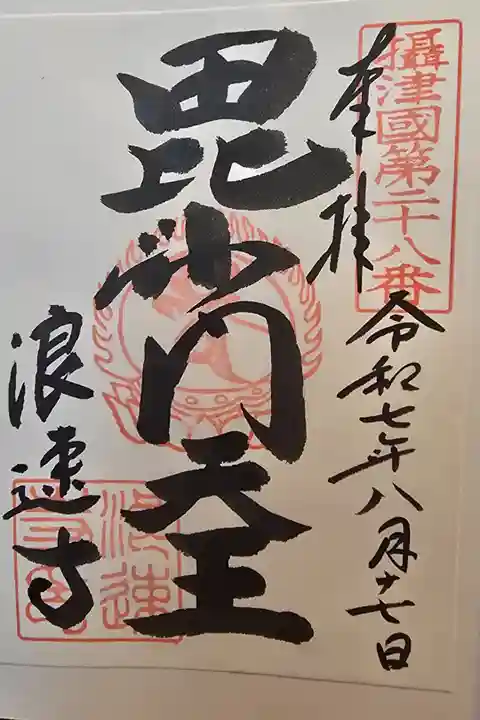 攝津國第二十八番
奉拝
令和七年八月十七日
毘沙門天王
浪速寺
浪速
寺印